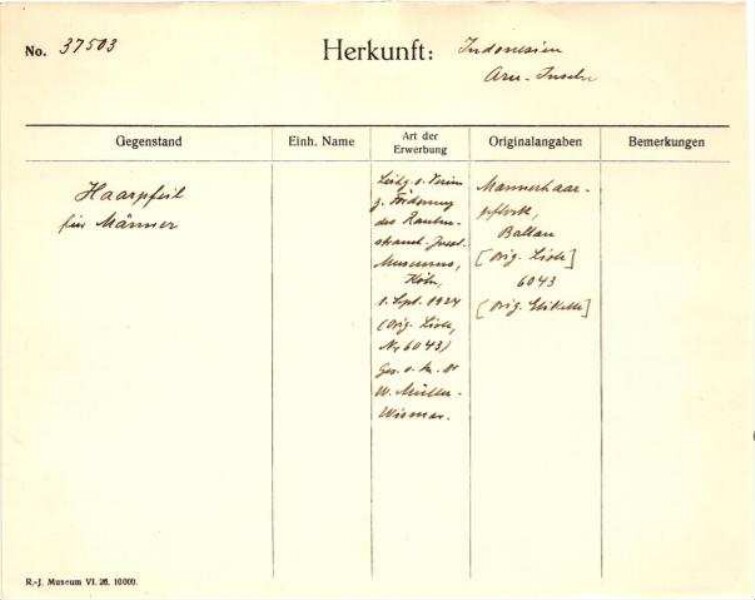 No. 37503
Herkunft: Indonesien
Aru-Inseln
Gegenstand
Einh. Name
Art der
Erwerbung
Originalangaben
Bemerkungen
Haarpfeil
für Männer
Leihg. v. Verein
z. Förderung
des Rauten-
strauch-Joest-
Museums,
Köln,
1. Sept. 1924
(Orig. Liste,
Nr 6043)
Ges. v. Dr
W. Müller-
Wismar.
Männerhaar-
pflock,
Ballau
[Orig. Liste]
6043
[Orig. Etikette]
R.-J. Museum VI. 26. 10000.